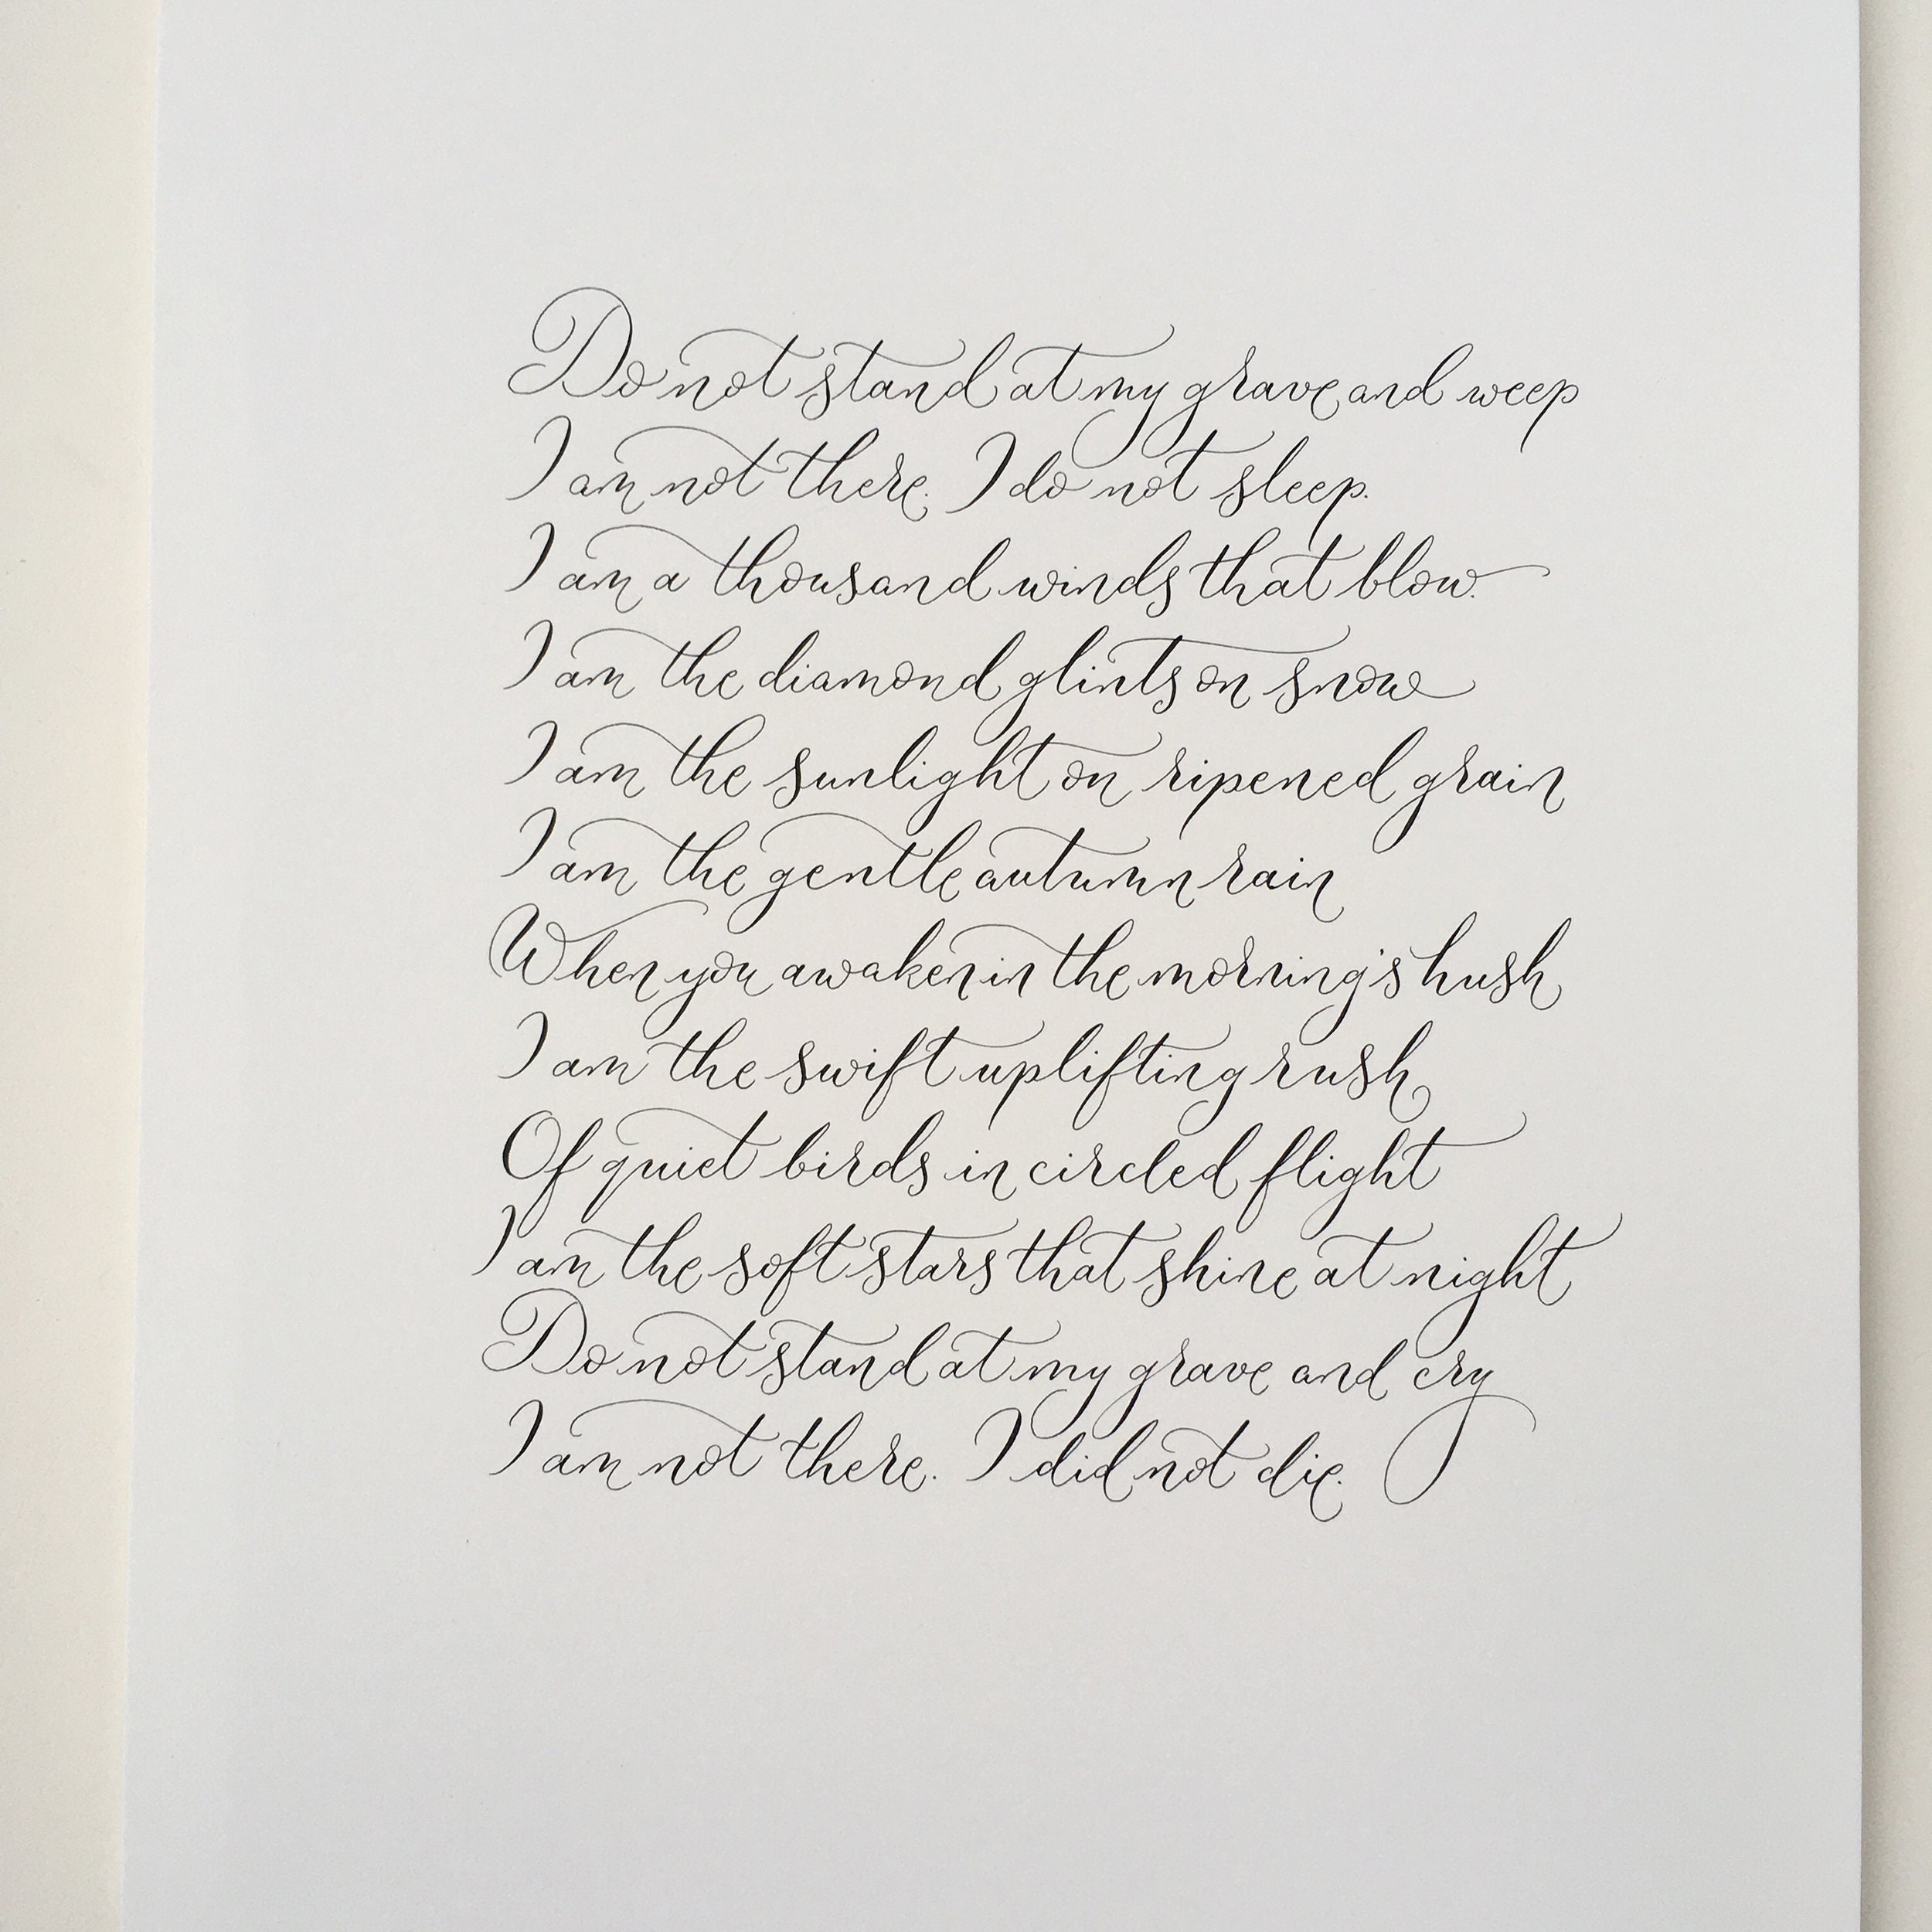 Do not stand at my grave and weep
I am not there. I do not sleep.
I am a thousand winds that blow.
I am the diamond glints on snow
I am the sunlight on ripened grain
I am the gentle autumn rain
When you awaken in the morning's hush
I am the swift uplifting rush
Of quiet birds in circled flight
I am the soft stars that shine at night
Do not stand at my grave and cry
I am not there. I did not die.